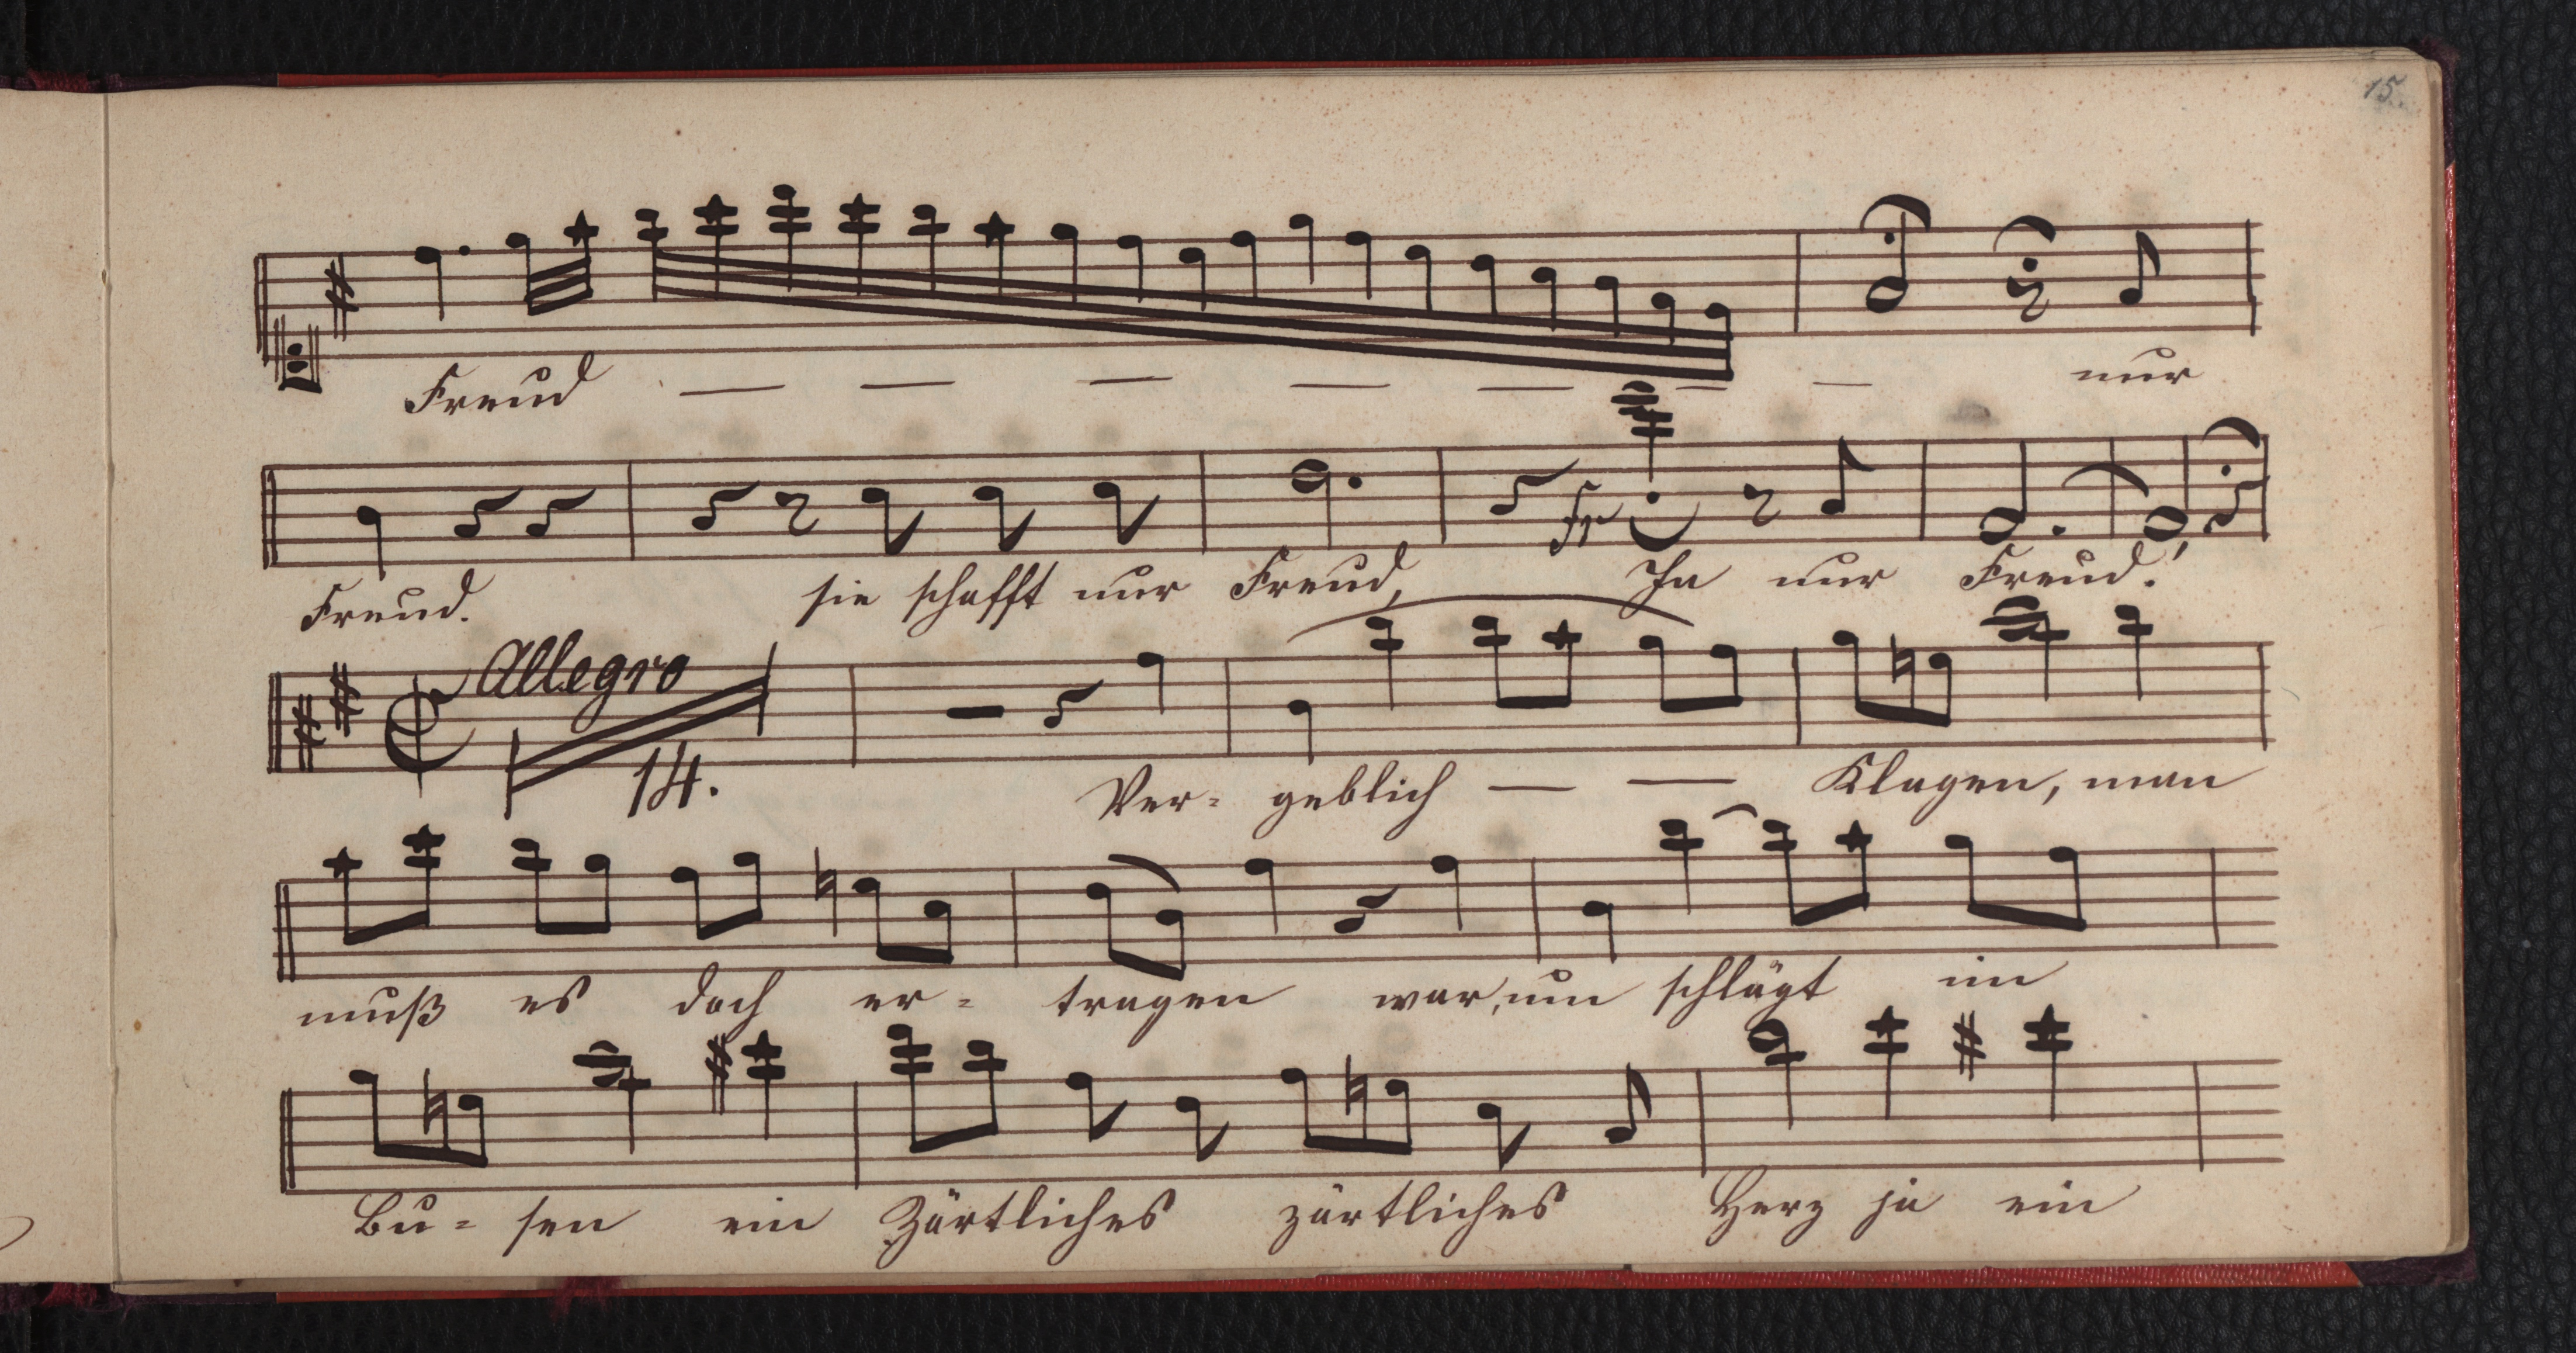 15.
Freud — — — — — — — nur
Freud. sie schafft nur Freud, Ja nur Freud!
Allegro
14.
Ver- geblich — — Klagen, man
muß es doch er- tragen warum schlägt im
Bu- sen ein Zärtliches zärtliches Herz ja ein